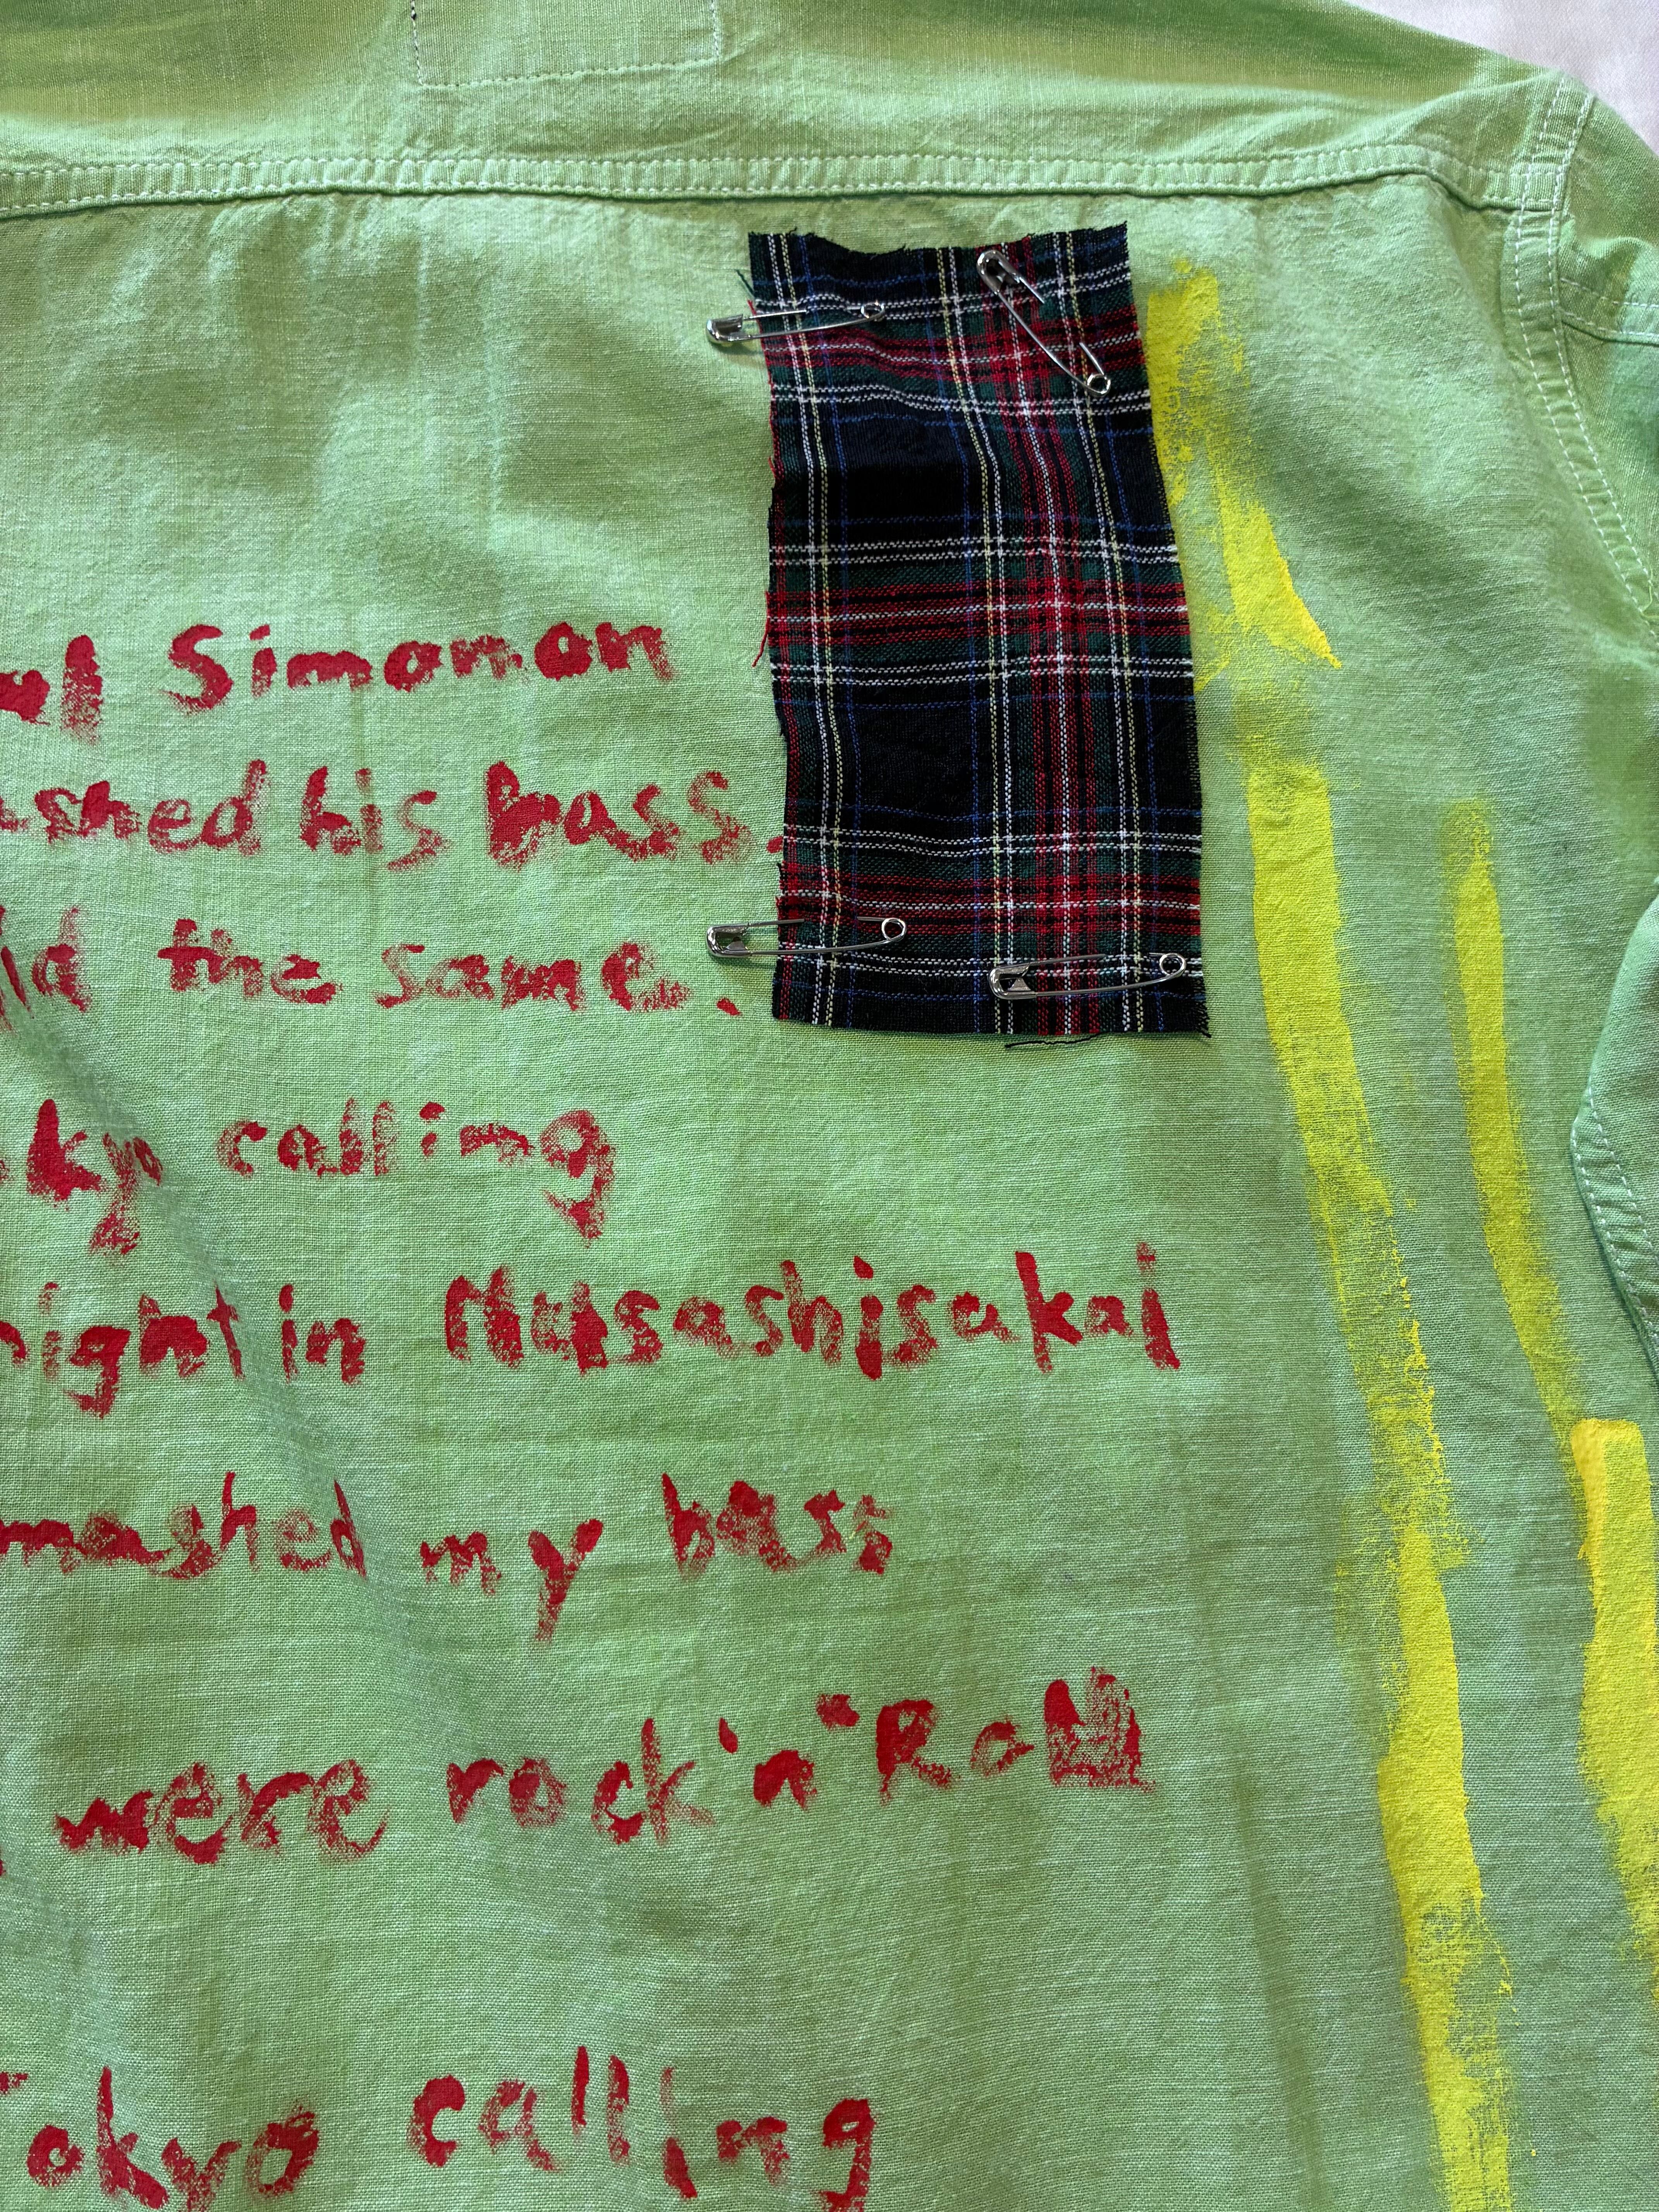 ul Simonon
ashed his bass.
did the same.
kyo calling
night in Musashisakai
mashed my bass
were rock 'n' Roll
Tokyo calling